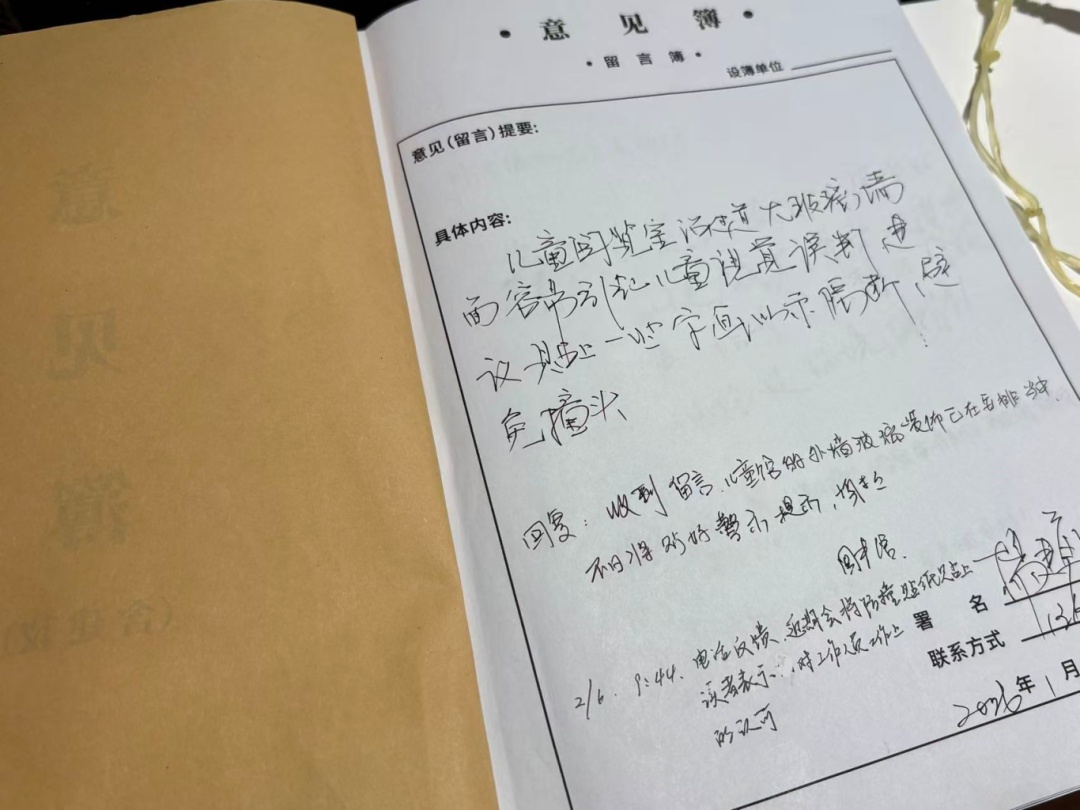 意见簿
留言簿
设簿单位
意见（留言）提要：
具体内容：
儿童阅览室 大玻璃墙
面容易引起儿童视觉误判 建
议贴上一些字画以示隔断，避
免撞头
回复：收到留言，儿童馆的外墙玻璃装饰已在安排当中，
不日将 好警示提示，
图书馆.
2/6. 9:44. 电话反馈，近期会将防撞贴纸贴上
读者表示 对工作人员工作上
的认可
署名
联系方式 136
2026年1月
意
见
簿